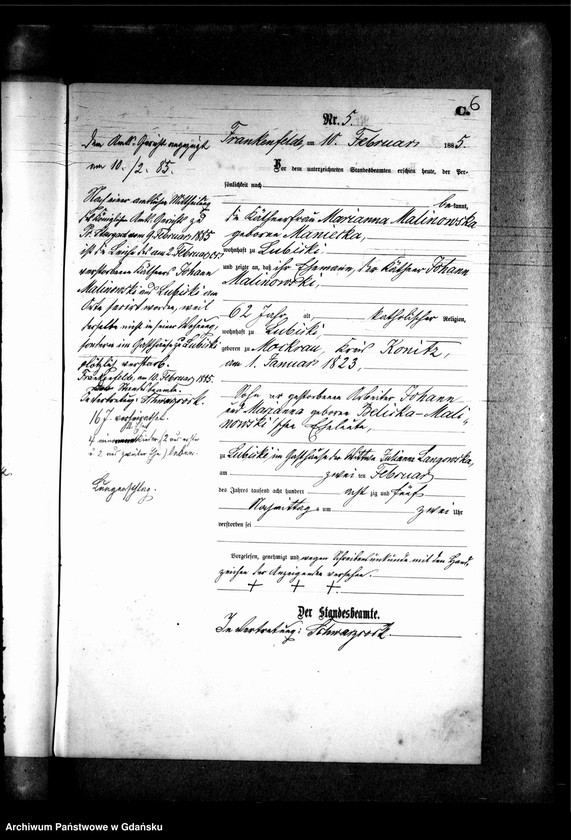 6
C.
Nr. 5.
Frankenfelde, am 10. Februar 1885.
Vor dem unterzeichneten Standesbeamten erschien heute, der Per-
sönlichkeit nach
bekannt,
die Käthnerfrau Marianna Malinowska
geborene Manicka,
wohnhaft zu Lubiki
und zeigte an, daß ihr Ehemann, der Käthner Johann
Malinowski,
62 Jahr, alt katholischer Religion,
wohnhaft zu Lubiki,
geboren zu Mockrau, Kreis Konitz,
am 1. Januar 1823,
Sohn der gestorbenen Arbeiter Johann
und Marianna geborene Belicka-Mali-
nowski'schen Eheleute,
zu Lubiki im Gasthause der Wittwe Julianna Langowska,
am zwei ten Februar
des Jahres tausend acht hundert acht zig und fünf
Nachmittags um zwei Uhr
verstorben sei
Vorgelesen, genehmigt und wegen Schreibensunkunde mit den Hand-
zeichen der Anzeigenden versehen.
+ + +
Der Standesbeamte.
In Vertretung: Schwarzrock.
Dem Amts-Gericht angezeigt
am 10./2. 85.
Nach einer amtlichen Mittheilung
des Königlichen Amts-Gerichts zu
Pr. Stargard vom 9. Februar 1885
ist die Leiche des am 2. Februar cr.
verstorbenen Käthners Johann
Malinowski aus Lubiki am
Orte secirt worden, weil
derselbe nicht in seiner Wohnung,
sondern im Gasthause zu Lubiki
plötzlich verstarb.
Frankenfelde, am 10. Februar 1885.
Der Standesbeamte.
In Vertretung: Schwarzrock.
verheirathet.
Lungenschlag.
Archiwum Państwowe w Gdańsku